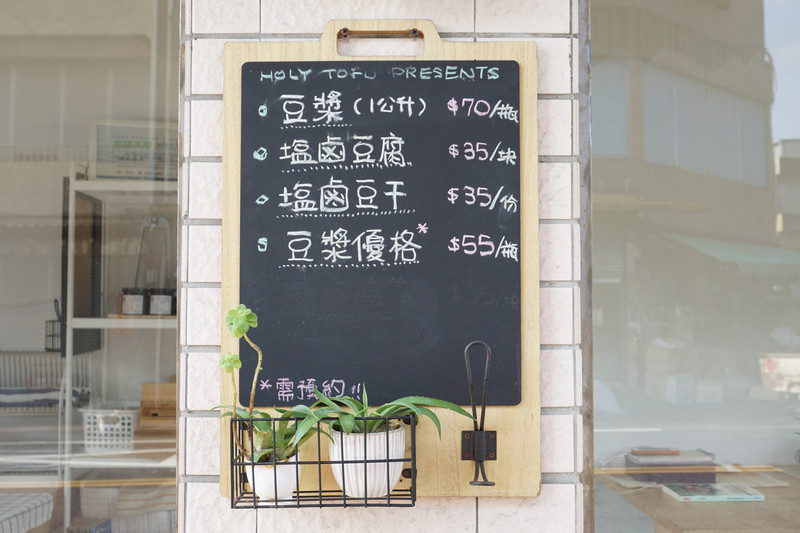 HOLY TOFU PRESENTS
豆漿(1公升) $70/瓶
塩鹵豆腐 $35/块
塩鹵豆干 $35/份
豆漿優格* $55/瓶
*需預約!!